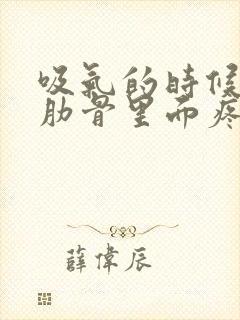 吸氣的時候
肋骨里面疼
薛偉辰